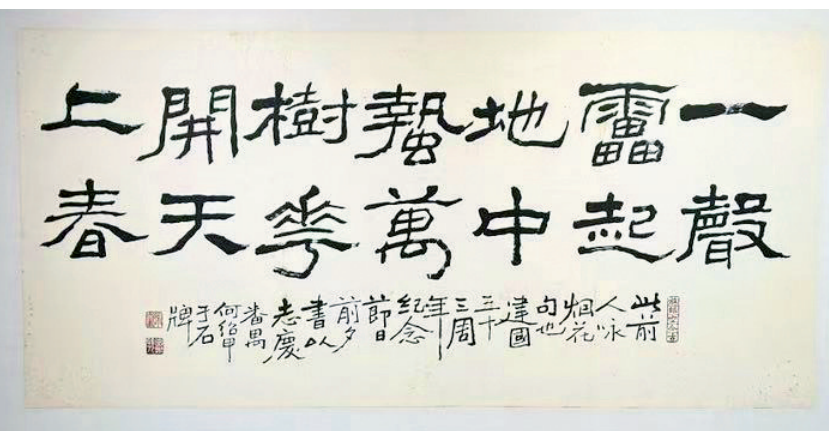 一聲
靁起
地中
蟄萬
樹華
開天
上春
此前
人咏
烟花
句也
建國
五十
三周
年
紀念
節日
前夕
書以
志慶
番禺
何紹甲
于石
牌